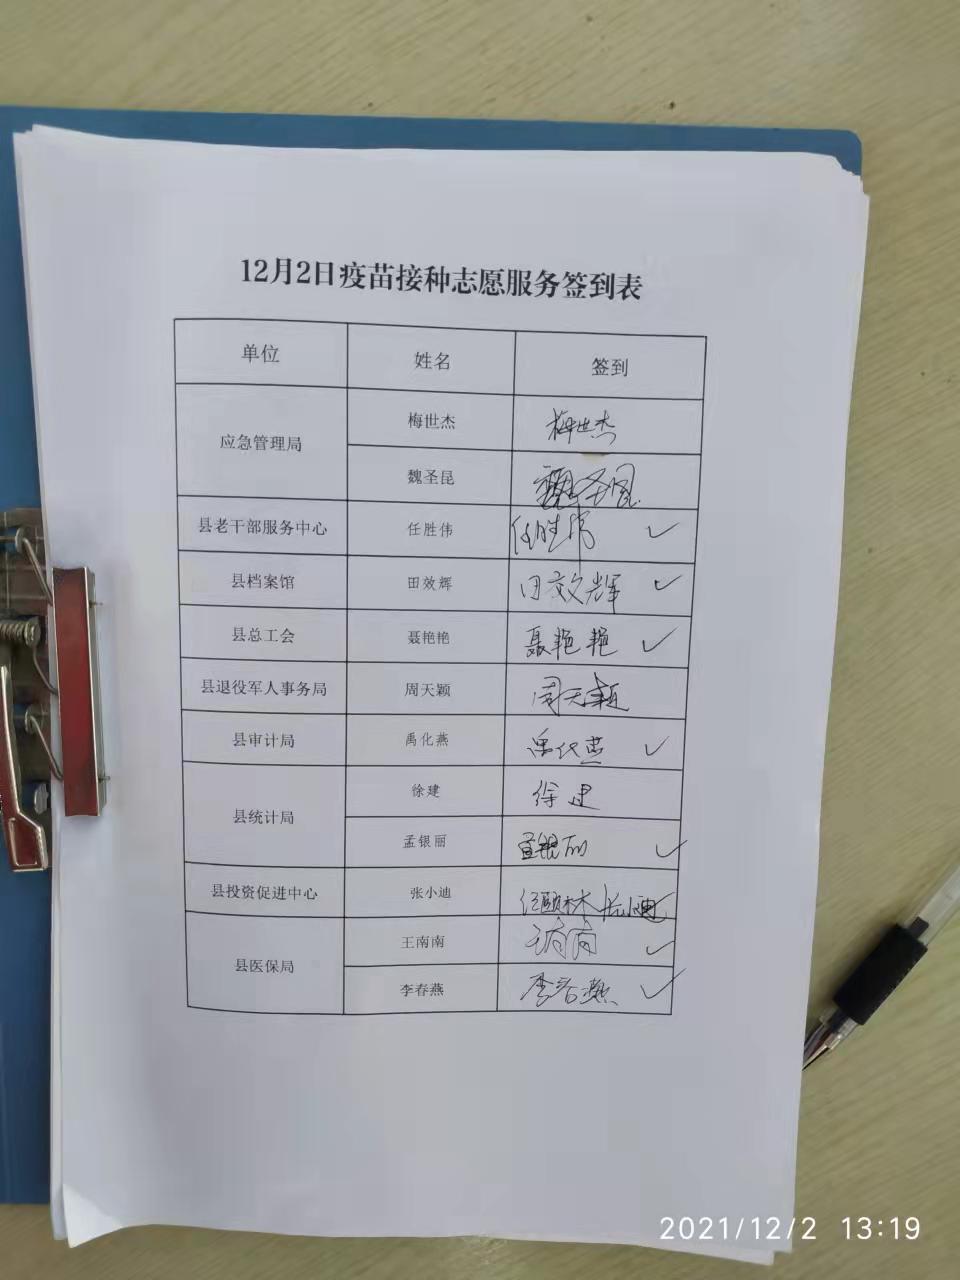 12月2日疫苗接种志愿服务签到表
单位 姓名 签到
应急管理局 梅世杰 梅世杰
魏圣昆 魏圣昆
县老干部服务中心 任胜伟 任胜伟 ✓
县档案馆 田效辉 田效辉 ✓
县总工会 聂艳艳 聂艳艳 ✓
县退役军人事务局 周天颖 周天颖
县审计局 禹化燕 禹化燕 ✓
县统计局 徐建 徐建
孟银丽 孟银丽 ✓
县投资促进中心 张小迪 张小迪
县医保局 王南南 王南南 ✓
李春燕 李春燕 ✓
2021/12/2 13:19